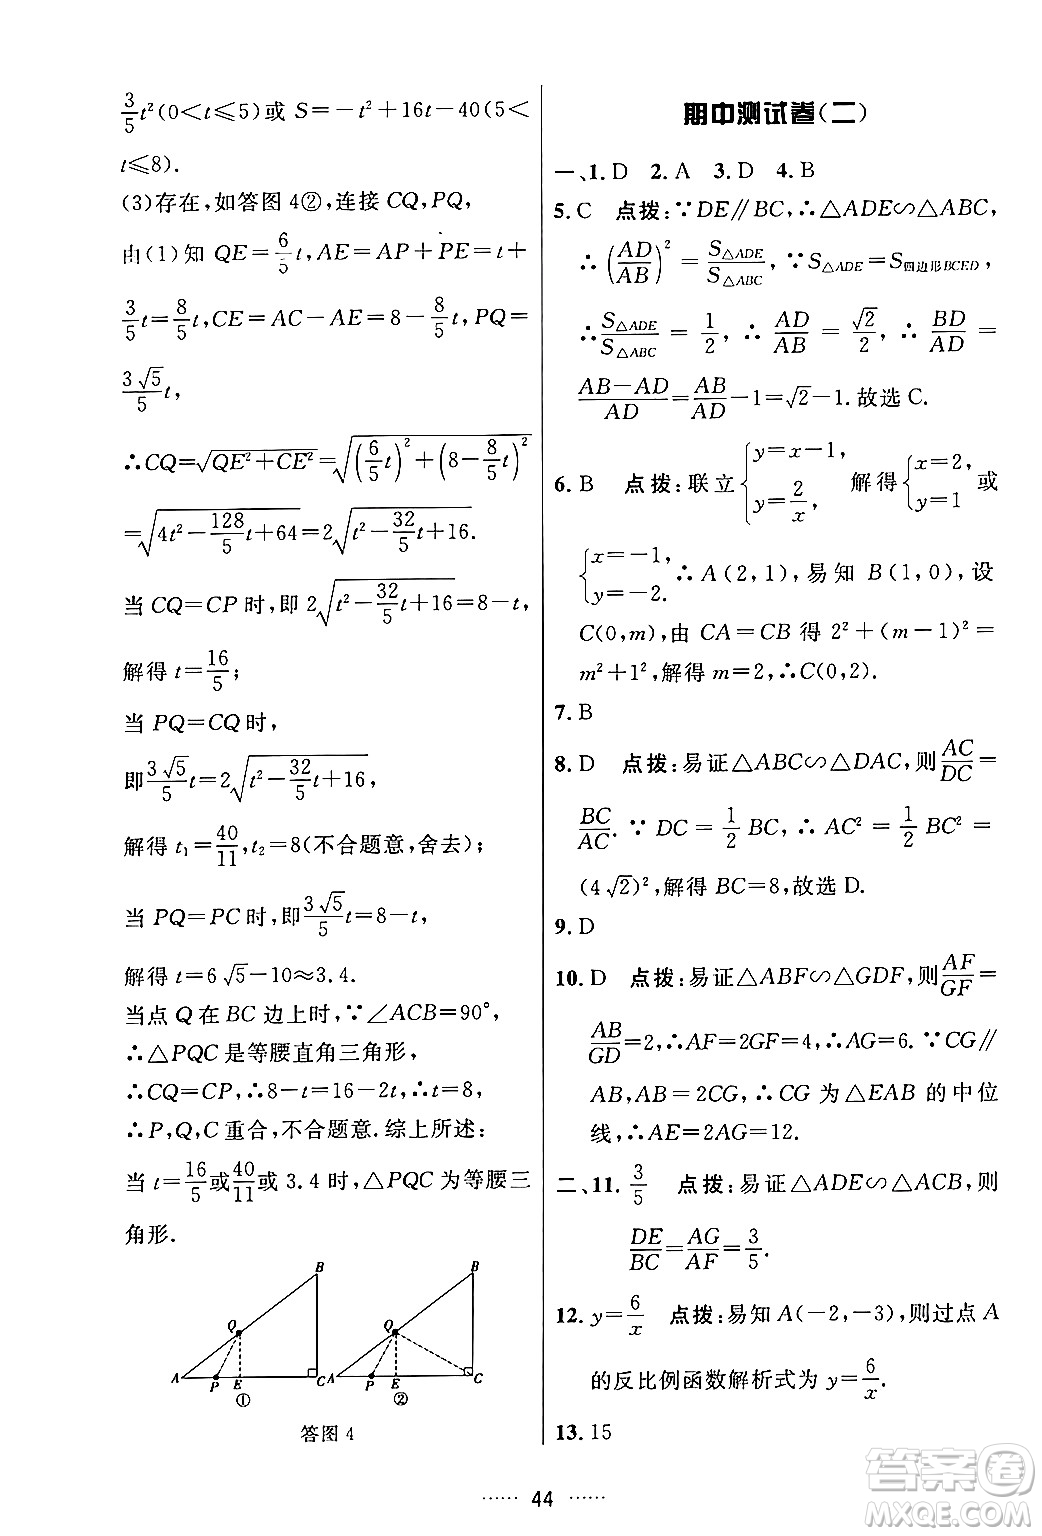 3/5 t²(0<t≤5)或 S=-t²+16t-40(5<
t≤8).
(3)存在,如答图 4②,连接 CQ,PQ,
由(1)知 QE=6/5 t,AE=AP+PE=t+
3/5 t=8/5 t,CE=AC-AE=8-8/5 t,PQ=
3√5/5 t,
∴CQ=√(QE²+CE²)=√((6/5 t)²+(8-8/5 t)²)
=√(4t²-128/5 t+64)=2√(t²-32/5 t+16).
当 CQ=CP 时,即 2√(t²-32/5 t+16)=8-t,
解得 t=16/5;
当 PQ=CQ 时,
即 3√5/5 t=2√(t²-32/5 t+16),
解得 t₁=40/11,t₂=8(不合题意,舍去);
当 PQ=PC 时,即 3√5/5 t=8-t,
解得 t=6√5-10≈3.4.
当点 Q 在 BC 边上时,∵∠ACB=90°,
∴△PQC 是等腰直角三角形,
∴CQ=CP,∴8-t=16-2t,∴t=8,
∴P,Q,C 重合,不合题意.综上所述:
当 t=16/5 或 40/11 或 3.4 时,△PQC 为等腰三
角形.
B
Q
A P E C
①
B
Q
A P E C
②
答图 4
期中测试卷(二)
一、1. D 2. A 3. D 4. B
5. C 点拨:∵DE∥BC,∴△ADE∽△ABC,
∴(AD/AB)²=S△ADE/S△ABC,∵S△ADE=S四边形BCED,
∴S△ADE/S△ABC=1/2,∴AD/AB=√2/2,∴BD/AD=
(AB-AD)/AD=AB/AD-1=√2-1.故选 C.
6. B 点拨:联立{y=x-1, y=2/x, 解得{x=2, y=1 或
{x=-1, y=-2. ∴A(2,1),易知 B(1,0),设
C(0,m),由 CA=CB 得 2²+(m-1)²=
m²+1²,解得 m=2,∴C(0,2).
7. B
8. D 点拨:易证△ABC∽△DAC,则 AC/DC=
BC/AC.∵DC=1/2 BC,∴AC²=1/2 BC²=
(4√2)²,解得 BC=8,故选 D.
9. D
10. D 点拨:易证△ABF∽△GDF,则 AF/GF=
AB/GD=2,∴AF=2GF=4,∴AG=6.∵CG∥
AB,AB=2CG,∴CG 为△EAB 的中位
线,∴AE=2AG=12.
二、11. 3/5 点拨:易证△ADE∽△ACB,则
DE/BC=AG/AF=3/5.
12. y=6/x 点拨:易知 A(-2,-3),则过点 A
的反比例函数解析式为 y=6/x.
13. 15
答案圈
MXQE.COM
······ 44 ······